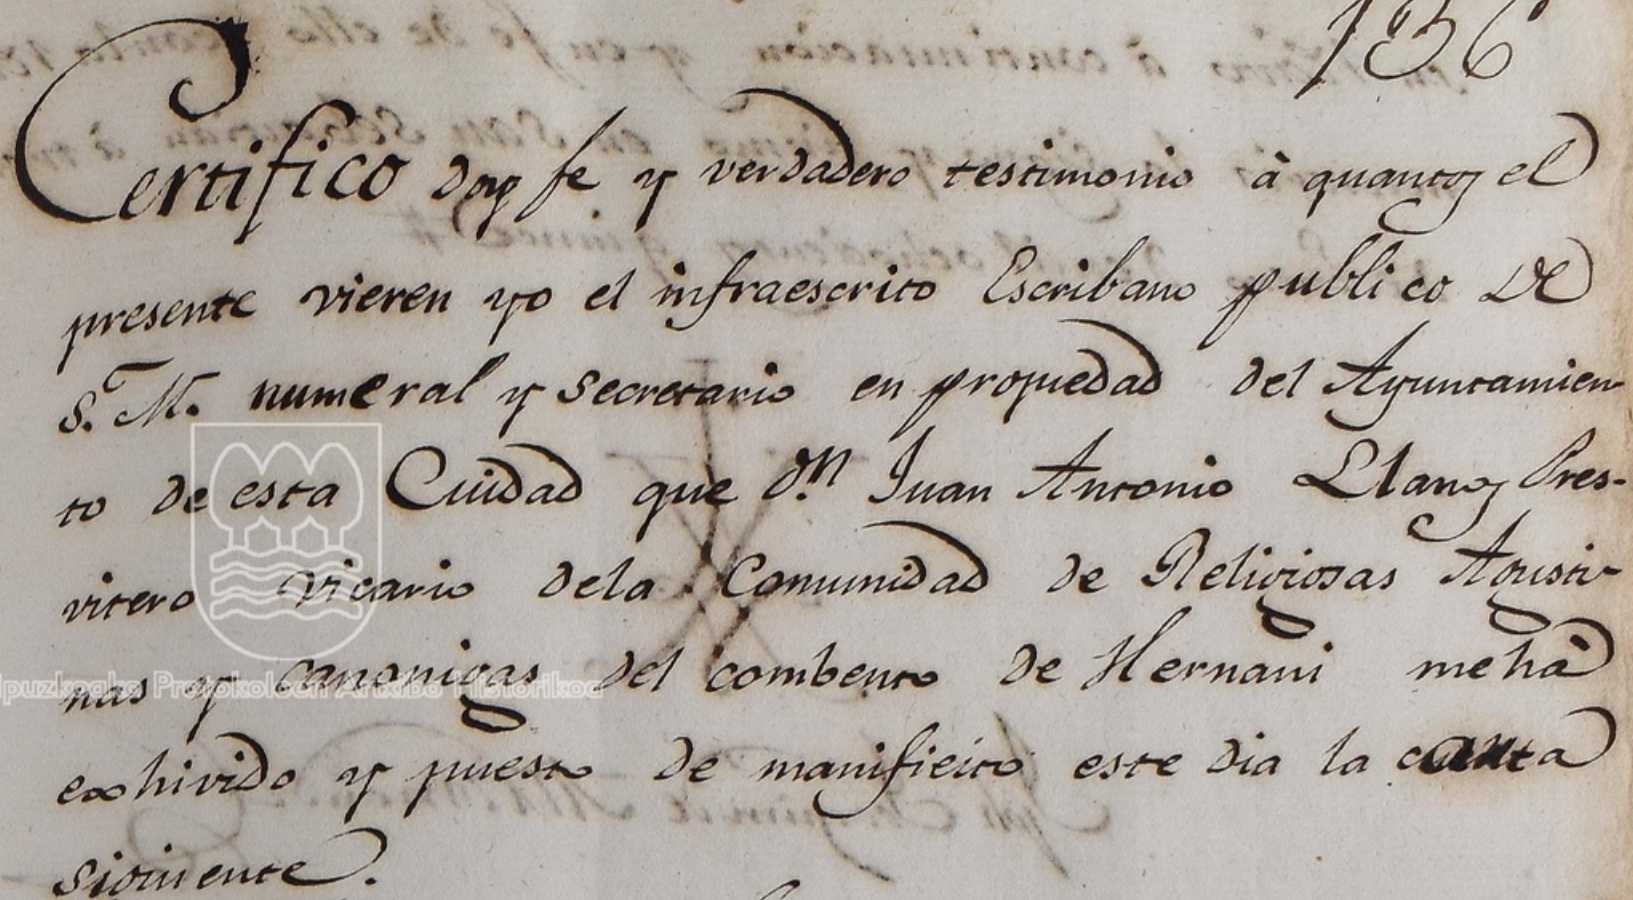 136
Certifico doy fe y verdadero testimonio à quantos el
presente vieren yo el infraescrito Escribano publico de
S. M. numeral y Secretario en propiedad del Ayuntamien
to de esta Ciudad que Dn. Juan Antonio Llanos Pres-
vitero Vicario dela Comunidad de Religiosas Agusti-
nas y canonigas del combento de Hernani me hà
exhivido y puesto de manifiesto este dia la carta
siguiente.
puzkoako Protokoloen Artxibo Historikoa